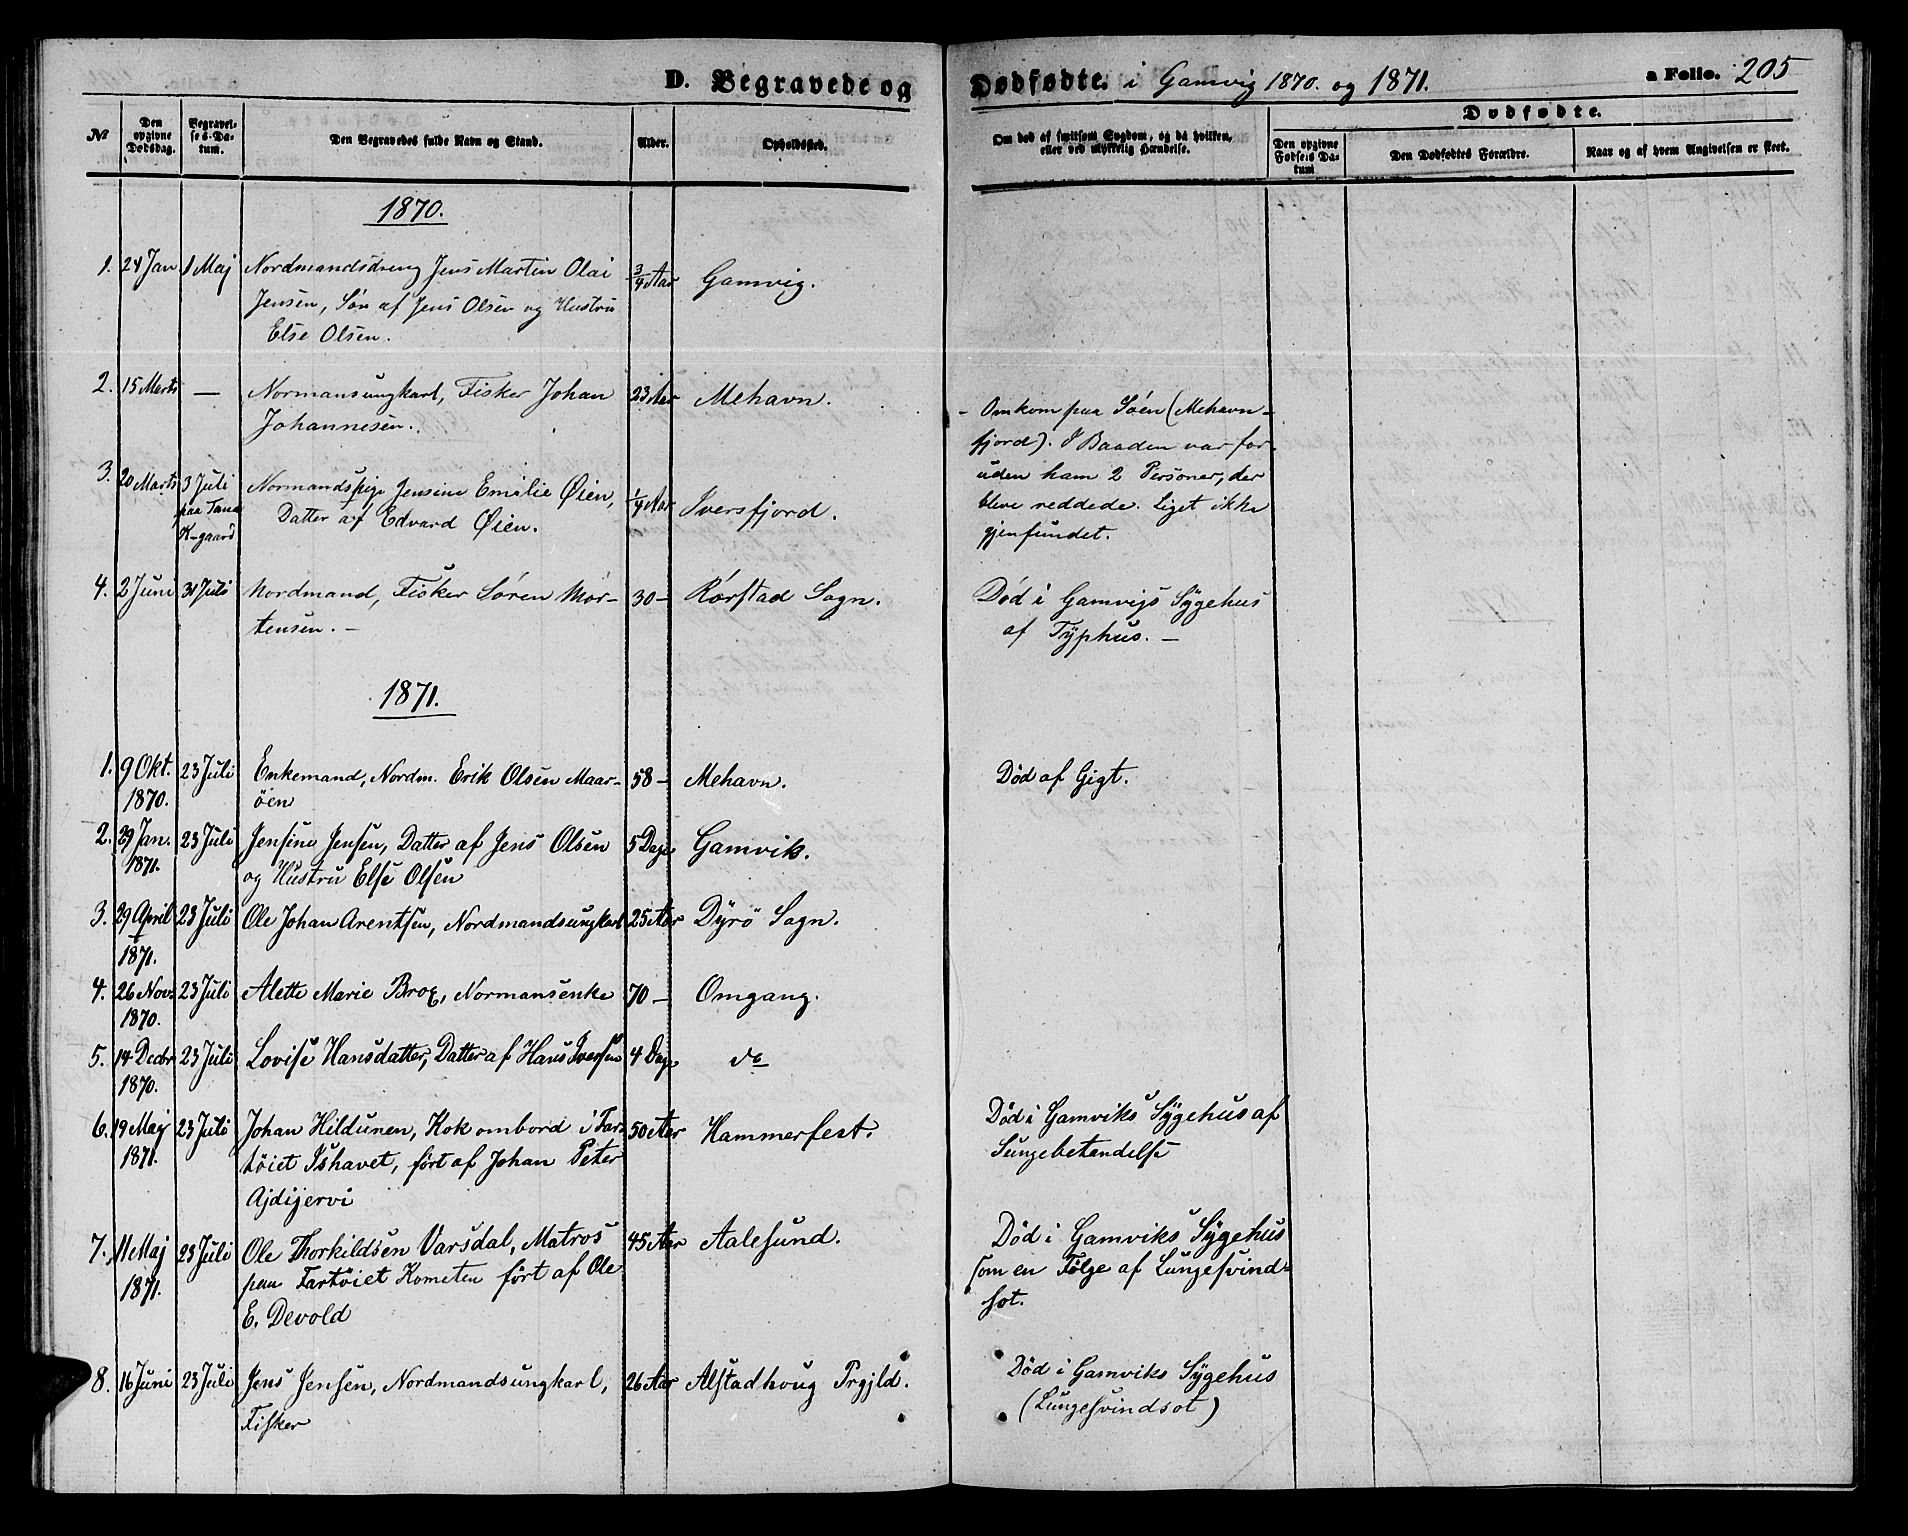 D. Begravede og Dødfødte. i Gamvig 1870. og 1871. a Folio. 205
No
Den opgivne Dødsdag.
Begravelses-Datum.
Den Begravedes fulde Navn og Stand.
Alder.
Opholdssted.
Om død af smitsom Sygdom, og da hvilken, eller ved ulykkelig Hændelse.
Dødfødte.
Den opgivne Fødsels Datum
Den Dødfødtes Forældre.
Naar og af hvem Angivelsen er skeet.
1870.
1. 24 Jan 1 Maj Nordmandsdreng Jens Martin Olai 3/4 Aar Gamvig.
Jensen, Søn af Jens Olsen og Hustru
Else Olsen.
2. 15 Marts — Normansungkarl, Fisker Johan 23 Aar Mehavn. - Omkom paa Søen (Mehavn-
Johannesen. fjord). I Baaden var for-
uden ham 2 Personer, der
bleve reddede. Liget ikke
gjenfundet.
3. 20 Marts 3 Juli Normandspige Jensine Emilie Øien, 1/4 Aar Iversfjord.
paa Tana Datter af Edvard Øien.
K-gaard
4. 2 Juni 31 Juli Nordmand, Fisker Sören Mor- 30 - Rörstad Sogn. Död i Gamvigs Sygehus
tensen. - af Typhus. -
1871.
1. 9 Okt. 23 Juli Enkemand, Nordm. Erik Olsen Maar- 58 - Mehavn. Död af Gigt.
1870. öen
2. 29 Jan. 23 Juli Jensine Jensen, Datter af Jens Olsen 5 Dage Gamvik.
1871. og Hustru Else Olsen
3. 29 April 23 Juli Ole Johan Arentsen, Nordmandsungkarl 25 Aar Dyrö Sogn.
1871.
4. 26 Novr 23 Juli Alette Marie Brox, Normansenke 70 - Omgang.
1870.
5. 14 Decbr 23 Juli Lovise Hansdatter, Datter af Hans Iversen 4 Dage do
1870.
6. 19 Maj 23 Juli Johan Hildunen, Kok ombord i Far- 50 Aar Hammerfest. Död i Gamviks Sygehus af
1871. töiet Ishavet, fört af Johan Peter Lungebetændelse
Ajdijervi
7. 11 Maj 23 Juli Ole Thorkildsen Varsdal, Matros 45 Aar Aalesund. Död i Gamviks Sygehus
1871. paa Fartöiet Kometen fört af Ole som en Fölge af Lungesvind-
E. Devold sot.
8. 16 Juni 23 Juli Jens Jensen, Nordmandsungkarl, 26 Aar Alstadhoug Prgjld. Död i Gamviks Sygehus
Fisker (Lungesvindsot)